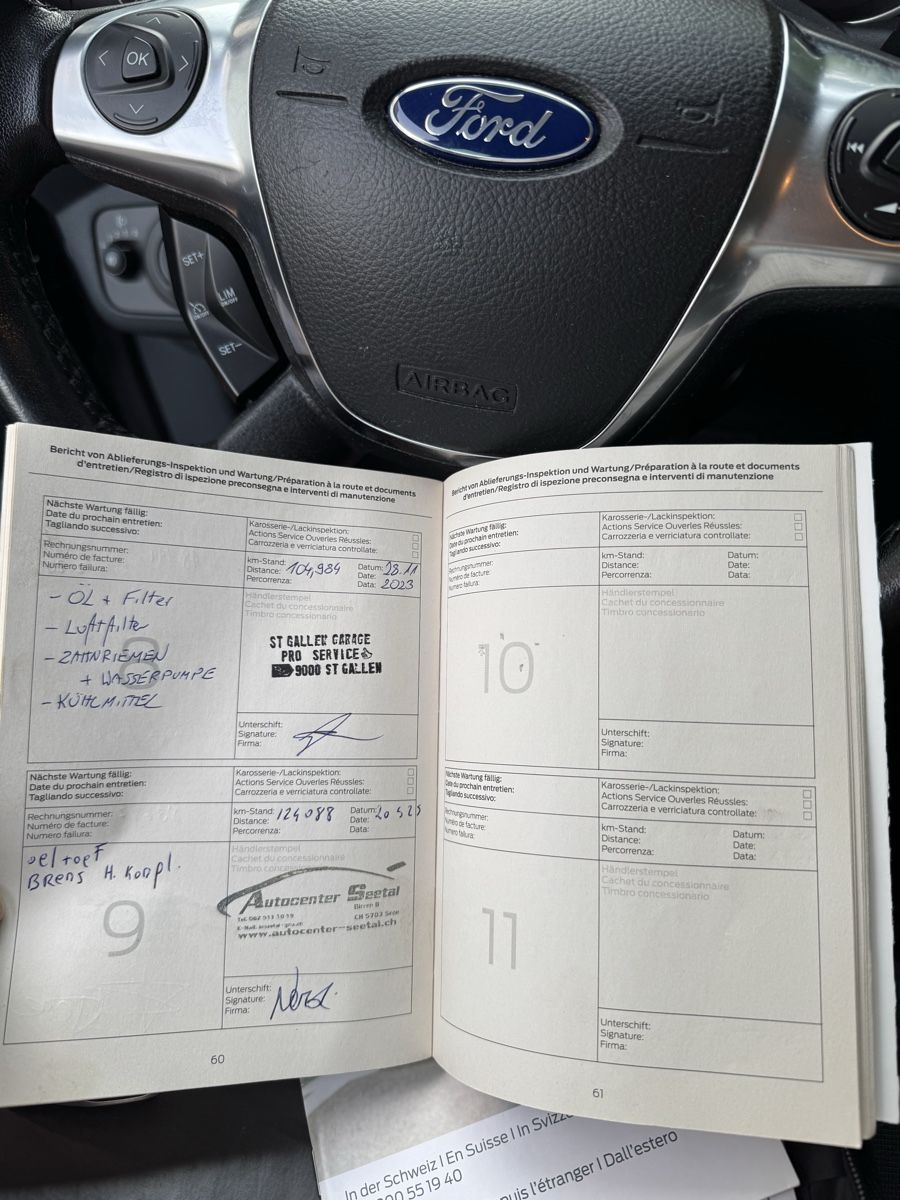 OK
Ford
SET+
LIM
ON/OFF
ON/OFF
SET−
AIRBAG
Bericht von Ablieferungs-Inspektion und Wartung/Préparation à la route et documents
d'entretien/Registro di ispezione preconsegna e interventi di manutenzione
Nächste Wartung fällig:
Date du prochain entretien:
Tagliando successivo:
Karosserie-/Lackinspektion:
Actions Service Ouvertes Réussies:
Carrozzeria e verriciatura controllate:
Rechnungsnummer:
Numéro de facture:
Numero failura:
km-Stand:
Distance: 104,984
Percorrenza:
Datum: 28.11
Date:
Data: 2023
8
- ÖL + Filter
- Luftfilter
- ZAHNRIEMEN
+ WASSERPUMPE
- KÜHLMITTEL
Händlerstempel
Cachet du concessionnaire
Timbro concessionario
ST GALLER GARAGE
PRO SERVICE
9000 ST GALLEN
Unterschrift:
Signature:
Firma:
Nächste Wartung fällig:
Date du prochain entretien:
Tagliando successivo:
Karosserie-/Lackinspektion:
Actions Service Ouverles Réussles:
Carrozzeria e verriciatura controllate:
Rechnungsnummer:
Numéro de facture:
Numero failura:
km-Stand: 124088
Distance:
Percorrenza:
Datum: 20 5 25
Date:
Data:
9
oel + oeF
BRems H. Kompl.
Händlerstempel
Cachet du concessionnaire
Timbro concessionario
Autocenter Seetal
Birren 8
CH 5703 Seon
www.autocenter-seetal.ch
Unterschift:
Signature:
Firma:
60
Bericht von Ablieferungs-Inspektion und Wartung/Préparation à la route et documents
d'entretien/Registro di ispezione preconsegna e interventi di manutenzione
Nächste Wartung fällig:
Date du prochain entretien:
Tagliando successivo:
Karosserie-/Lackinspektion:
Actions Service Ouverles Réussles:
Carrozzeria e verriciatura controllate:
Rechnungsnummer:
Numéro de facture:
Numero failura:
km-Stand:
Distance:
Percorrenza:
Datum:
Date:
Data:
10
Händlerstempel
Cachet du concessionnaire
Timbro concessionario
Unterschift:
Signature:
Firma:
Nächste Wartung fällig:
Date du prochain entretien:
Tagliando successivo:
Karosserie-/Lackinspektion:
Actions Service Ouverles Réussles:
Carrozzeria e verriciatura controllate:
Rechnungsnummer:
Numéro de facture:
Numero failura:
km-Stand:
Distance:
Percorrenza:
Datum:
Date:
Data:
11
Händlerstempel
Cachet du concessionnaire
Timbro concessionario
Unterschift:
Signature:
Firma:
61
In der Schweiz I En Suisse I In Svizze
00 55 19 40
puis l'étranger I Dall'estero